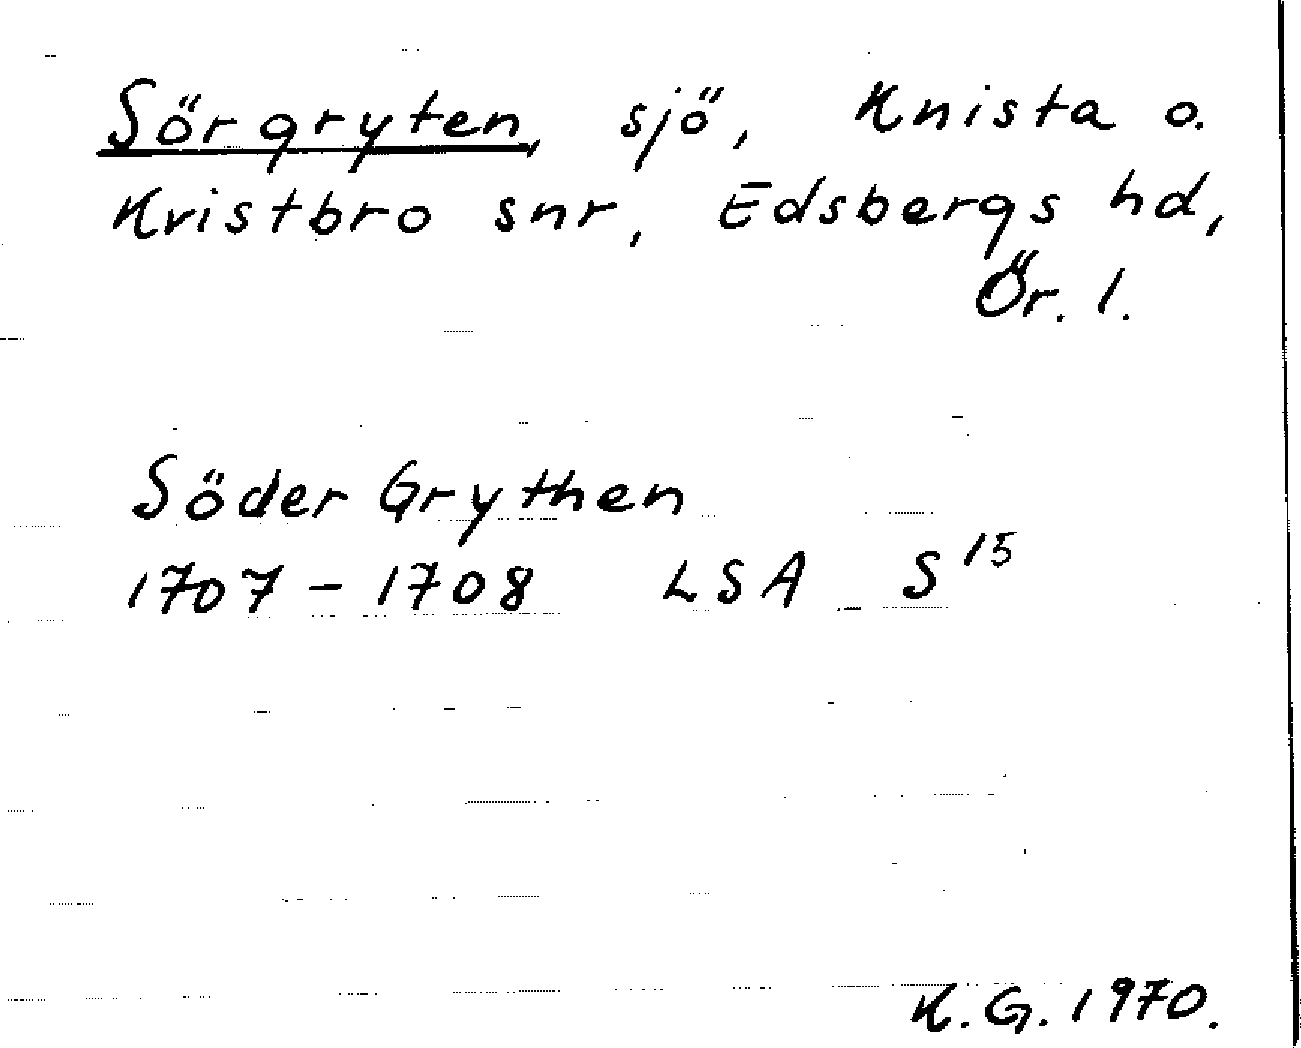 Sörgryten, sjö, Knista o.
Kvistbro snr, Edsbergs hd,
Ör. l.
Söder Grythen
1707-1708 LSA S 15
K. G. 1970.